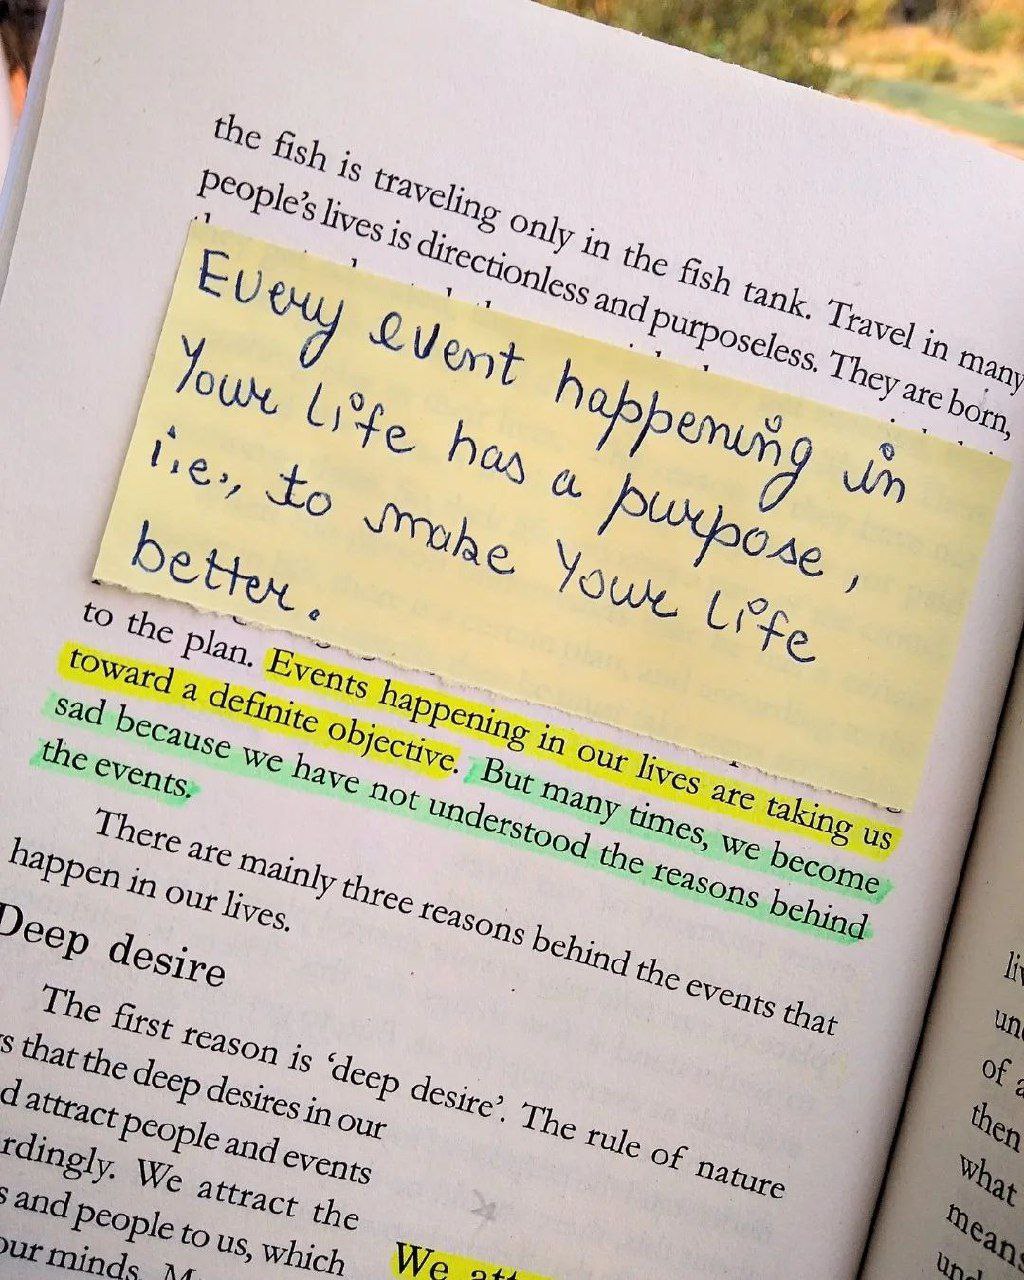 the fish is traveling only in the fish tank. Travel in many
people's lives is directionless and purposeless. They are born,
Every event happening in
Your life has a purpose,
i.e., to make Your life
better.
to the plan. Events happening in our lives are taking us
toward a definite objective. But many times, we become
sad because we have not understood the reasons behind
the events.
There are mainly three reasons behind the events that
happen in our lives.
Deep desire
The first reason is ‘deep desire’. The rule of nature
that the deep desires in our
attract people and events
We attract the
and people to us, which
our minds.
We
of
then
what
means